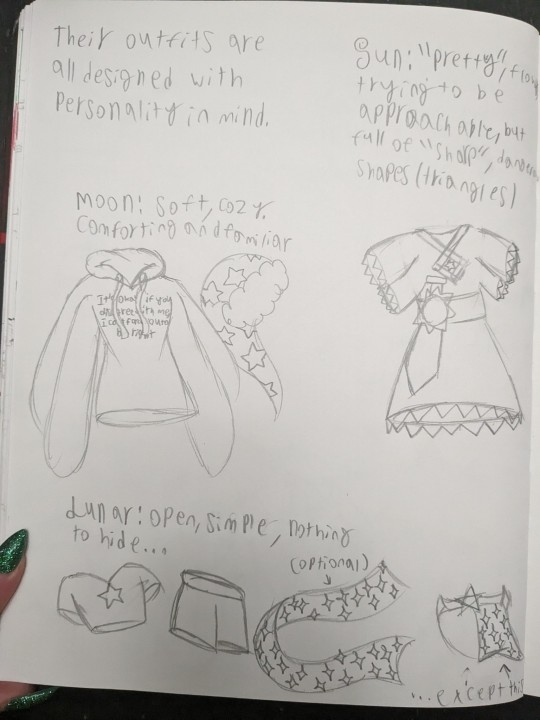 Their outfits are
all designed with
Personality in mind.
Sun: "pretty",
trying to be
approachable, but
full of "sharp",
shapes (triangles)
Moon: soft, cozy.
Comforting and familiar
It's okay if you
disagree with me
I can't
right
Lunar: open, simple, nothing
to hide...
(optional)
...except this